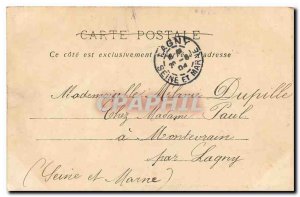 CARTE POSTALE
Ce côté est exclusivement adresse
LAGNY
04
SEINE ET MARNE
Mademoiselle Dupille
Chez Madame Paul
à Montevrain
par Lagny
(Seine et Marne)